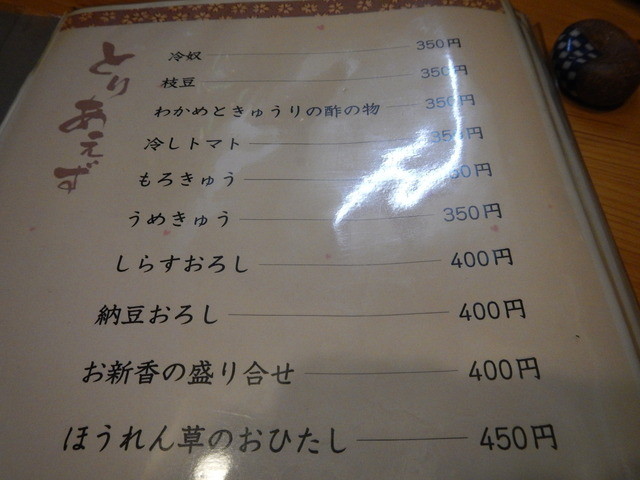 とりあえず
冷奴 350円
枝豆 350円
わかめときゅうりの酢の物 350円
冷しトマト 350円
もろきゅう 50円
うめきゅう 350円
しらすおろし 400円
納豆おろし 400円
お新香の盛り合せ 400円
ほうれん草のおひたし 450円